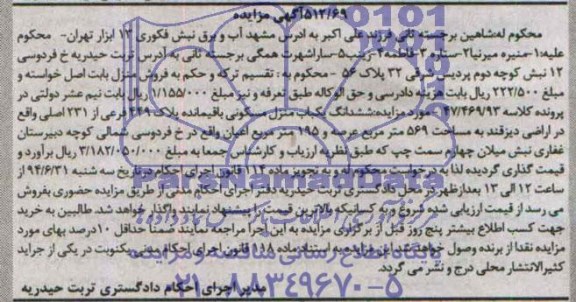 ۵۱۲/۶۹آگهی مزایده
محکوم له:شاهین برجسته ثانی فرزند علی اکبر به ادرس مشهد آب و برق نبش فکوری ۱۳ ابزار تهران- محکوم
علیه:۱-منیره میرنیا۲-ستاره ۳-فاطمه۴-زینب۵-ساراشهرت همگی برجسته ثانی به آدرس تربت حیدریه خ فردوسی
۱۲ نبش کوچه دوم پردیس شرقی ۳۲ پلاک ۵۶ - محکوم به: تقسیم ترکه و حکم به فروش منزل بابت اصل خواسته و
مبلغ ۲۲۲/۵۰۰ ریال بابت هزینه دادرسی و حق الوکاله طبق تعرفه و نیز مبلغ ۱/۱۵۵/۰۰۰ ریال بابت نیم عشر دولتی در
پرونده کلاسه ۹۷/۴۶۹/۹۳- مورد مزایده:ششدانگ یکباب منزل مسکونی باقیمانده پلاک ۴۴۹ فرعی از ۲۳۱ اصلی واقع
در اراضی دیزقند به مساحت ۵۶۹ متر مربع عرصه و ۱۹۵ متر مربع اعیان واقع در خ فردوسی شمالی کوچه دبیرستان
غفاری نبش میلان چهارم سمت چپ که طبق نظریه ارزیاب و کارشناس جمعا به مبلغ ۳/۱۸۲/۰۵۰/۰۰۰ ریال برآورد و
قیمت گذاری گردیده لذا به درخواست محکوم له و به تجویز ماده ۱۱۴ قانون اجرای احکام در تاریخ سه شنبه ۹۴/۶/۳۱ از
ساعت ۱۲ الی ۱۳ بعدازظهر در محل دادگستری تربت حیدریه دفتر اجرای احکام مدنی از طریق مزایده حضوری بفروش
می رسد از قیمت ارزیابی شده شروع و به کسانیکه بالاترین قیمت را پیشنهاد نمایند واگذار خواهد شد. طالبین به خرید
جهت کسب اطلاع بیشتر پنج روز قبل از برگزاری مزایده به این اجرا مراجعه نمایند ضمنا حداقل ۱۰درصد بهای مورد
مزایده نقدا از برنده وصول خواهد شد این مزایده به استناد ماده ۱۱۸ قانون اجرای احکام مدنی یکنوبت در یکی از جراید
کثیرالانتشار محلی درج و نشر می گردد.
مدیر اجرای احکام دادگستری تربت حیدریه
پایگاه اطلاع رسانی مناقصه و مزایده
۰۲۱-۸۸۳۴۹۶۷۰-۵